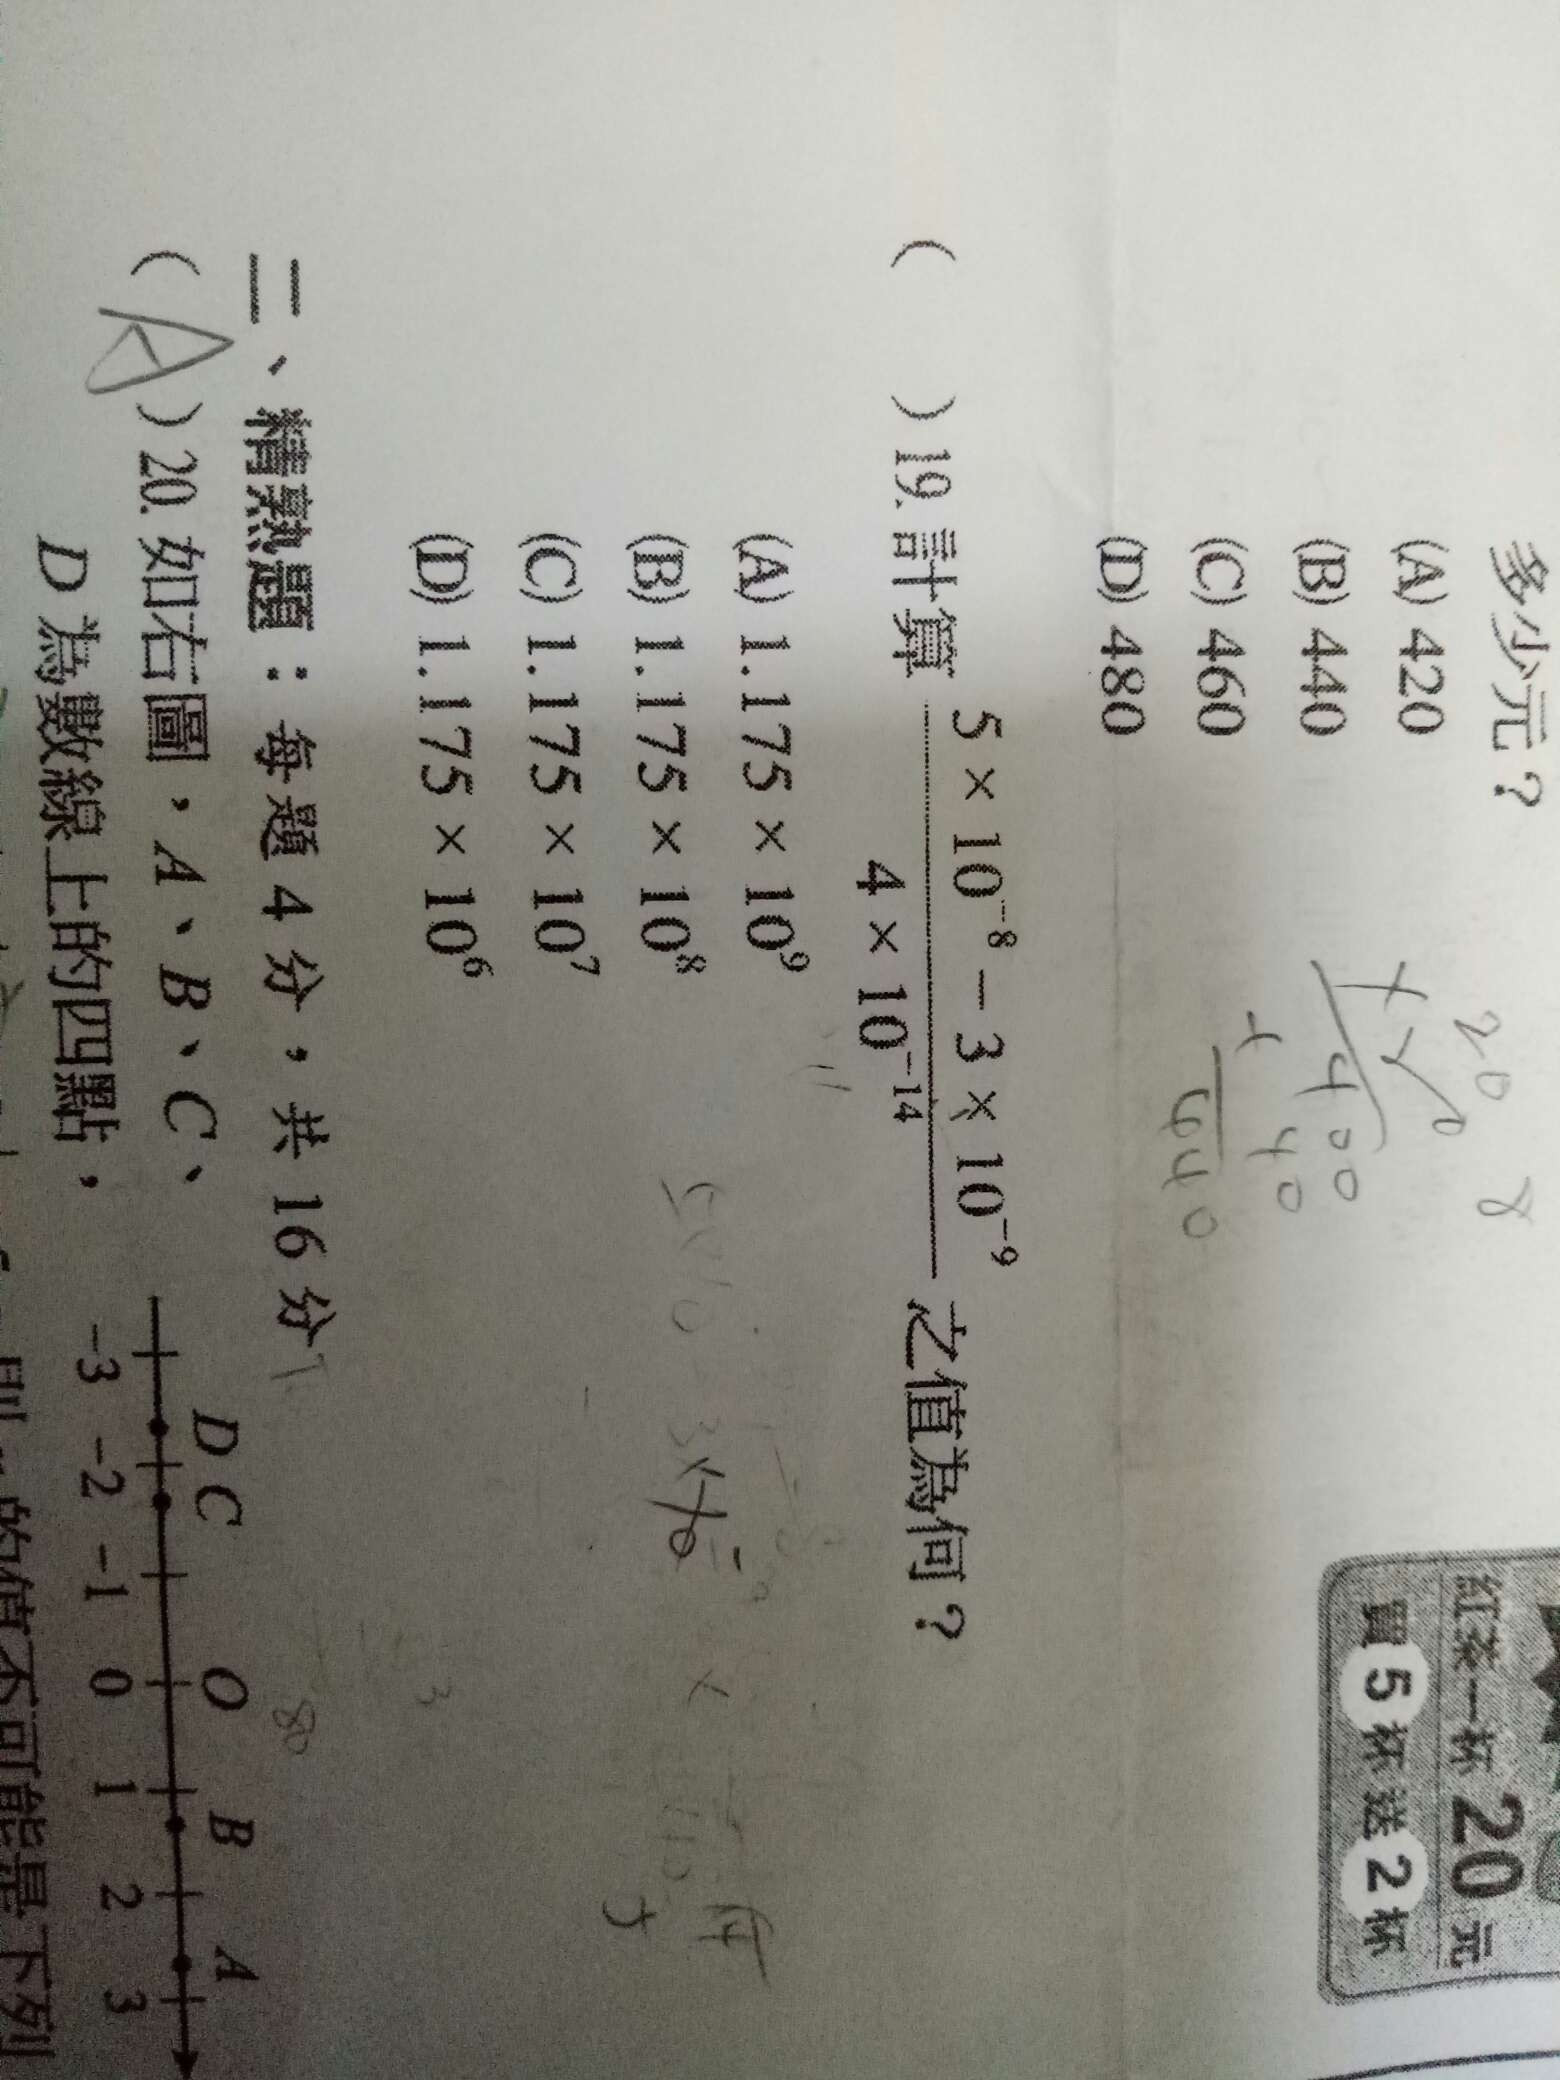 多少元？
(A) 420
(B) 440
(C) 460
(D) 480
紅茶一杯 20 元
買 5 杯送 2 杯
20 8
400
40
440
(　　) 19. 計算 \frac{5 × 10⁻⁸ − 3 × 10⁻⁹}{4 × 10⁻¹⁴} 之值為何？
(A) 1.175 × 10⁹
(B) 1.175 × 10⁸
(C) 1.175 × 10⁷
(D) 1.175 × 10⁶
二、精熟題：每題 4 分，共 16 分
( A ) 20. 如右圖，A、B、C、
D 為數線上的四點，
D C O B A
−3 −2 −1 0 1 2 3
的值不可能是下列